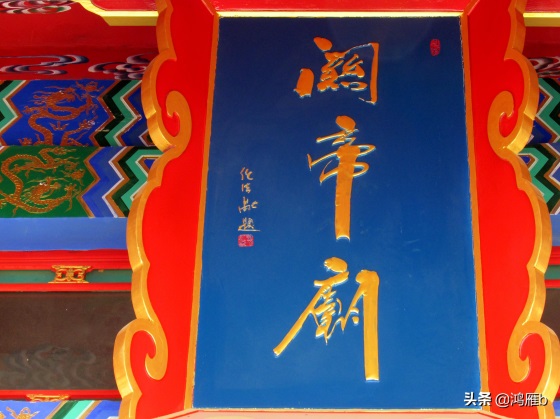 關帝廟
头条 @鸿雁b